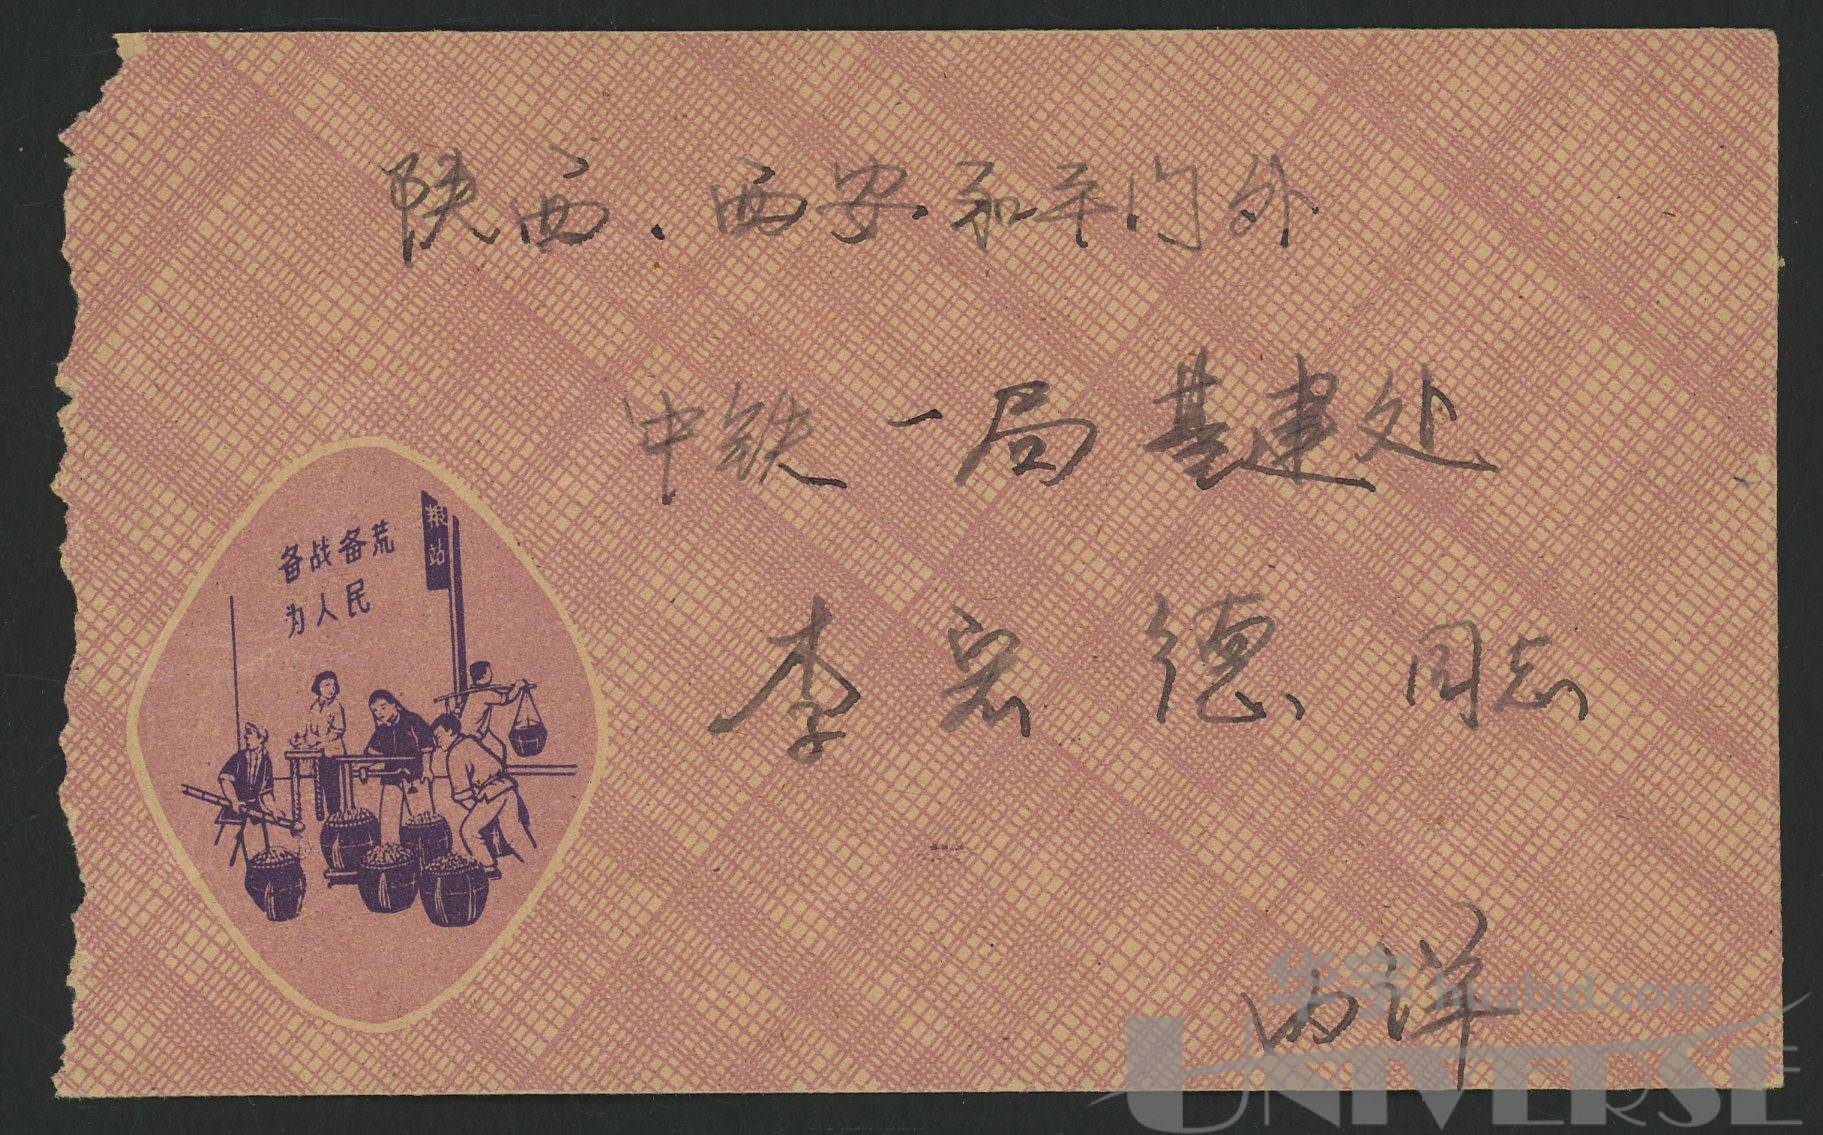 陕西.西安.和平门外
中铁一局基建处
李宏德 同志
内详
粮站
备战备荒
为人民
华宇 huabid.com
UNIVERSE